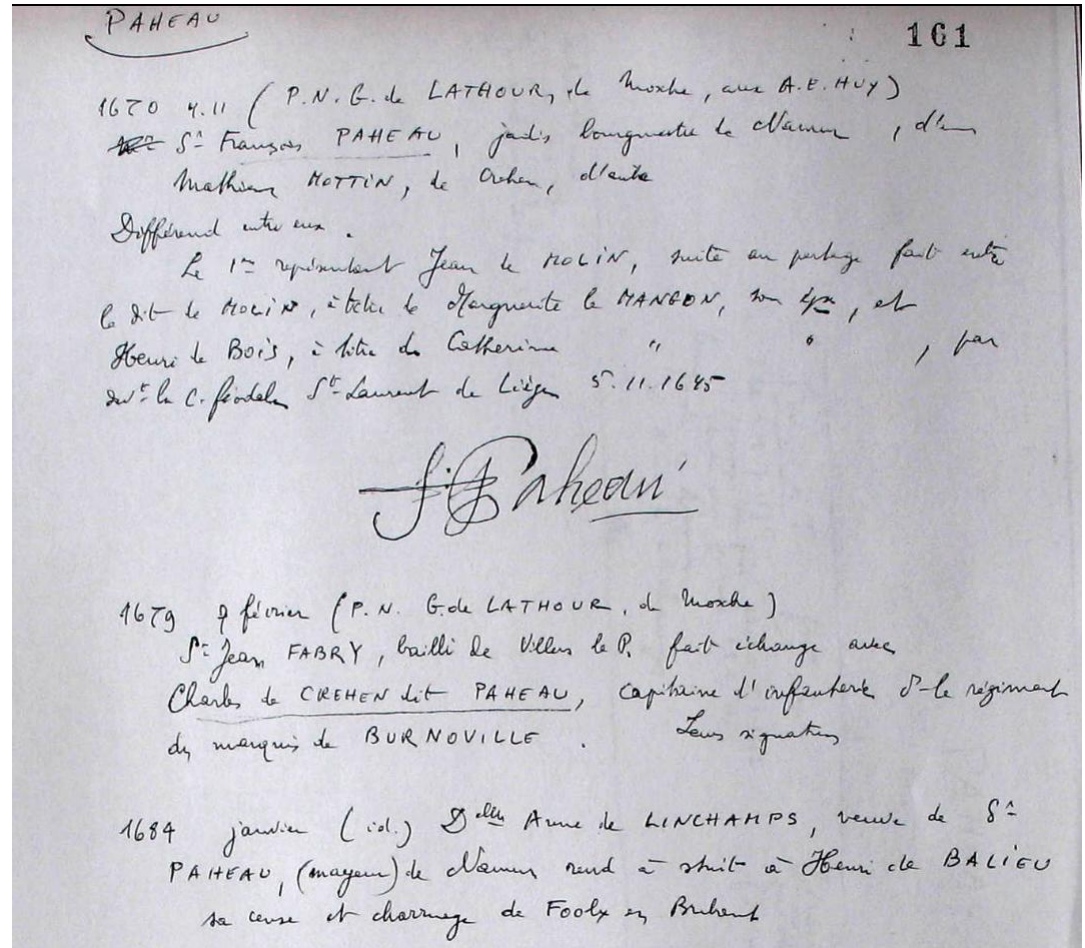 PAHEAU
161
1670 4.11 (P.N. G. de LATHOUR, de Moxhe, aux A.E. HUY)
Sr François PAHEAU, jadis bourgmestre de Namur, d'une
Mathieu MOTTIN, de Crehen, d'autre
Différend entre eux.
Le 1er représentant Jean le MOLIN, suite au partage fait entre
le dit le MOLIN, à titre de Marguerite le MANGON, son épse, et
Henri de BOIS, à titre de Catherine " " , par
dvt la C. féodale St-Laurent de Liège 5.11.1645
Paheau
1679 9 février (P.N. G. de LATHOUR, de Moxhe)
Sr Jean FABRY, bailli de Villers le P. fait échange avec
Charles de CREHEN dit PAHEAU, capitaine d'infanterie ds le régiment
du marquis de BURNOVILLE. Leurs signatures
1684 janvier (id.) Delle Anne de LINCHAMPS, veuve de Sr
PAHEAU, (mayeur) de Namur rend à stuit à Henri de BALIEU
sa cense et charruage de Foolx en Brabant